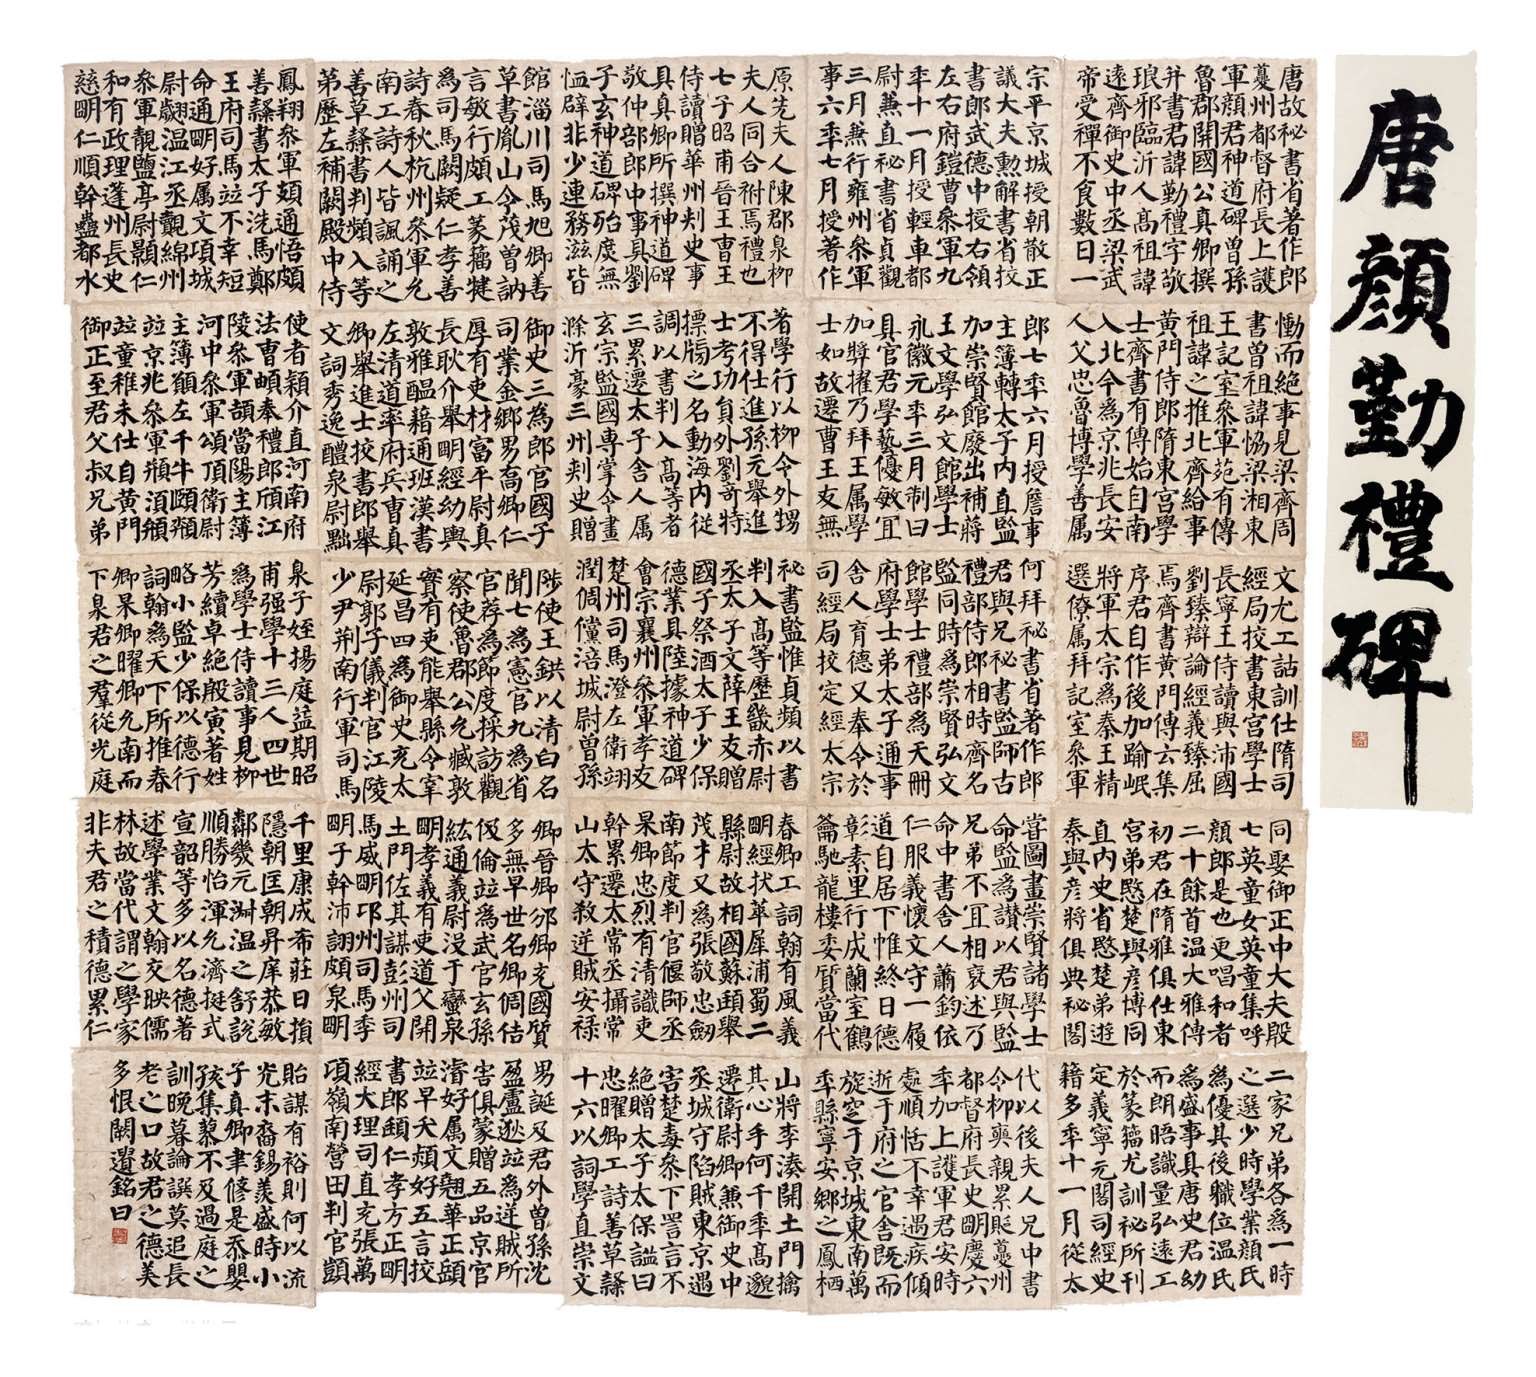 唐顏勤禮碑
唐故秘書省著作郎
夔州都督府長上護
軍顏君神道碑曾孫
魯郡開國公真卿撰
并書君諱勤禮字敬
琅邪臨沂人高祖諱
遠齊御史中丞梁武
帝受禪不食數日一
慟而絶事見梁齊周
書曾祖諱協梁湘東
王記室參軍苑有傳
祖諱之推北齊給事
黃門侍郎隋東宮學
士齊書有傳始自南
入北今為京兆長安
人父忠魯博學善属
文尤工詁訓仕隋司
經局挍書東宮學士
長寧王侍讀與沛國
劉臻辯論經義臻屈
焉齊書黃門傳云集
序君自作後加踰岷
將軍太宗為秦王精
選僚属拜記室參軍
同娶御正中大夫殷
七英童女英童集呼
顏郎是也更唱和者
二十餘首温大雅傳
初君在隋雅俱仕東
宮弟愍楚與彦博同
直内史省愍楚弟遊
秦與彦將俱典秘閣
二家兄弟各為一時
之選少時學業顏氏
為優其後職位温氏
為盛事具唐史君幼
而朗晤識量弘遠工
於篆籀尤訓秘所刊
定義寧元閣司經史
籍多年十一月從太
宗平京城授朝散正
議大夫勲解書省挍
書郎武德中授右領
左右府鎧曹參軍九
年十一月授輕車都
尉兼直秘書省貞觀
三月兼行雍州參軍
事六年七月授著作
郎七年六月授詹事
主簿轉太子内直監
加崇賢館廢出補蔣
王文學弘文館學士
永徽元年三月制曰
具官君學藝優敏宜
加奬擢乃拜王属學
士如故遷曹王友無
何拜秘書省著作郎
君與兄秘書監師古
禮部侍郎相時齊名
監同時為崇賢弘文
館學士禮部為天冊
府學士弟太子通事
舍人育德又奉令於
司經局挍定經太宗
嘗圖畫崇賢諸學士
命監為讃以君與監
兄弟不宜相裒述乃
命中書舍人蕭鈞依
仁服義懷文守一履
道自居下帷終日德
彰素里行成蘭室鶴
籥馳龍樓委質當代
代以後夫人兄中書
令柳奭親累貶夔州
都督府長史明慶六
年加上護軍君安時
處順恬不幸遇疾傾
逝于府之官舍既而
旋窆于京城東南萬
年縣寧安鄉之鳳栖
原先夫人陳郡泉柳
夫人同合祔焉禮也
七子昭甫晉王曹王
侍讀贈華州刾史事
具真卿所撰神道碑
敬仲部郎中事具劉
子玄神道碑殆庶無
恤辟非少連務滋皆
著學行以柳令外甥
不得仕進孫元舉進
士考功員外劉奇特
摽牓之名動海内從
調以書判入高等者
三累遷太子舍人属
玄宗監國専掌令畫
滁沂豪三州刾史贈
祕書監惟貞頻以書
判入高等歷畿赤尉
丞太子文薛王友贈
國子祭酒太子少保
德業具陸據神道碑
會宗襄州參軍孝友
楚州司馬澄左衛翊
潤倜儻涪城尉曾孫
春卿工詞翰有風義
明經拔萃犀浦蜀二
縣尉故相國蘇頲舉
茂才又為張敬忠劔
南節度判官偃師丞
果卿忠烈有清識吏
幹累遷太常丞攝常
山太守殺逆賊安禄
山將李湊開土門擒
其心手何千年高邈
遷衛尉卿兼御史中
丞城守陷賊東京遇
害楚毒參下詈言不
絕贈太子太保謚曰
忠曜卿工詩善草隸
十六以詞學直崇文
館淄川司馬旭卿善
草書胤山令茂曾訥
言敏行頗工篆籀犍
為司馬闕疑仁孝善
詩春秋杭州參軍允
南工詩人皆諷誦之
善草隸書判頻入等
第歷左補闕殿中侍
御史三為郎官國子
司業金鄉男喬卿仁
厚有吏材富平尉真
長耿介舉明經幼輿
敦雅醖藉通班漢書
左清道率府兵曹真
卿舉進士挍書郎舉
文詞秀逸醴泉尉黜
陟使王鉷以清白名
聞七為憲官九為省
官荐為節度採訪觀
察使魯郡公允臧敦
實有吏能舉縣令宰
延昌四為御史充太
尉郭子儀判官江陵
少尹荊南行軍司馬
卿晉卿邠卿充國質
多無早世名卿倜佶
伋倫竝為武官玄孫
紘通義尉没于蠻泉
明孝義有吏道父開
土門佐其謀彭州司
馬威明邛州司馬季
明子幹沛詡頗泉明
男誕及君外曾孫沈
盈盧逖竝為逆賊所
害俱蒙贈五品京官
濬好属文翹華正頣
竝早夭頍好五言挍
書郎頲仁孝方正明
經大理司直充張萬
項嶺南營田判官顗
鳳翔參軍頍通悟頗
善隸書太子洗馬鄭
王府司馬竝不幸短
命通明好属文項城
尉翽温江丞覿綿州
參軍靚鹽亭尉顥仁
和有政理蓬州長史
慈明仁順幹蠱都水
使者穎介直河南府
法曹頔奉禮郎頎江
陵參軍頡當陽主簿
河中參軍頌頂衛尉
主簿願左千牛頤頫
竝京兆參軍頫須頫
竝童稚未仕自黃門
御正至君父叔兄弟
泉子姪揚庭益期昭
甫强學十三人四世
為學士侍讀事見柳
芳續卓絕殷寅著姓
略小監少保以德行
詞翰為天下所推春
卿杲卿曜卿允南而
下泉君之羣從光庭
千里康成希莊日損
隱朝匡朝昇庠恭敏
鄰幾元淵温之舒說
順勝怡渾允濟挺式
宣韶等多以名德著
述學業文翰交映儒
林故當代謂之學家
非夫君之積德累仁
貽謀有裕則何以流
光末裔錫羨盛時小
子真卿聿修是忝嬰
孩集蓼不及過庭之
訓晚暮論譔莫追長
老之口故君之德美
多恨闕遺銘曰